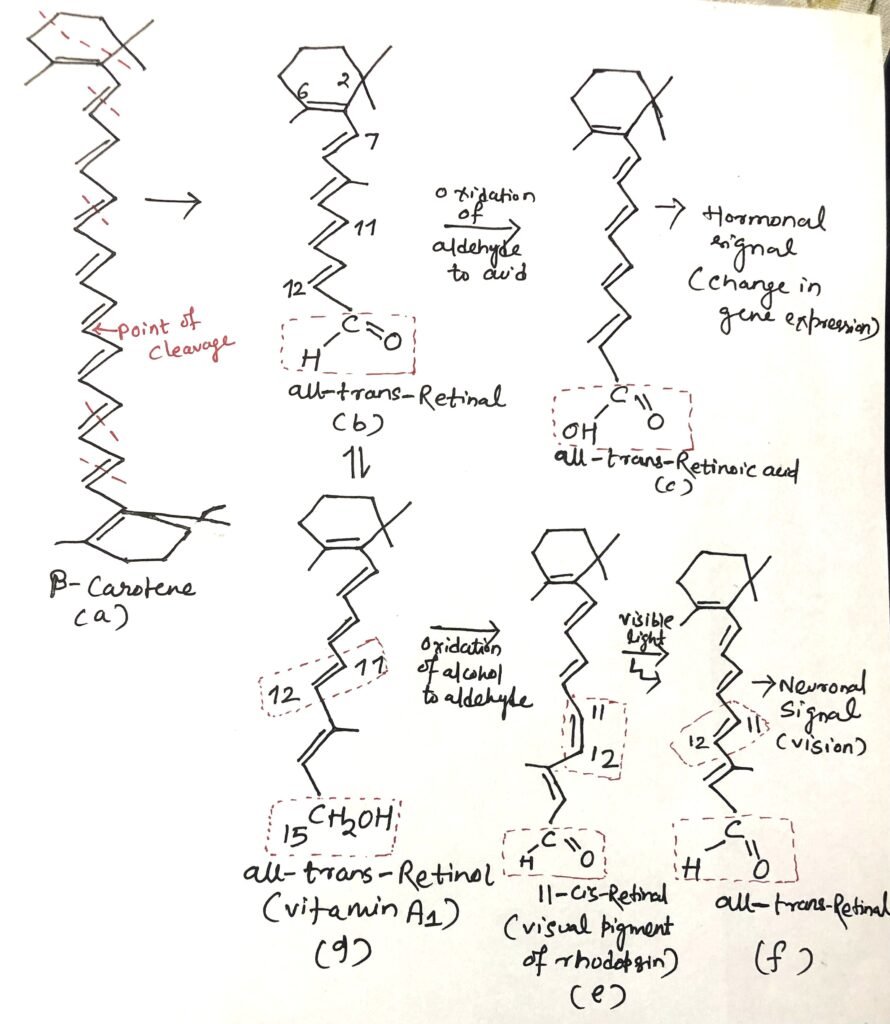 6 2
7
11
12
C
H O
all-trans-Retinal
(b)
oxidation
of
aldehyde
to acid
C
OH O
all-trans-Retinoic acid
(c)
Hormonal
signal
(change in
gene expression)
point of
cleavage
β-Carotene
(a)
12 11
15 CH2OH
all-trans-Retinol
(vitamin A1)
(g)
oxidation
of alcohol
to aldehyde
11
12
C
H O
11-cis-Retinal
(visual pigment
of rhodopsin)
(e)
visible
light
12 11
C
H O
all-trans-Retinal
(f)
Neuronal
signal
(vision)